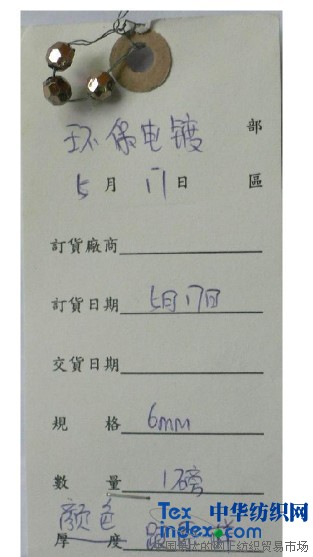 环保电镀 部
5月17日 區
訂貨廠商
訂貨日期 5月17日
交貨日期
規格 6mm
數量 1磅
颜色
厚度
Tex 中华纺织网
index.com 中国最大的网上纺织贸易市场